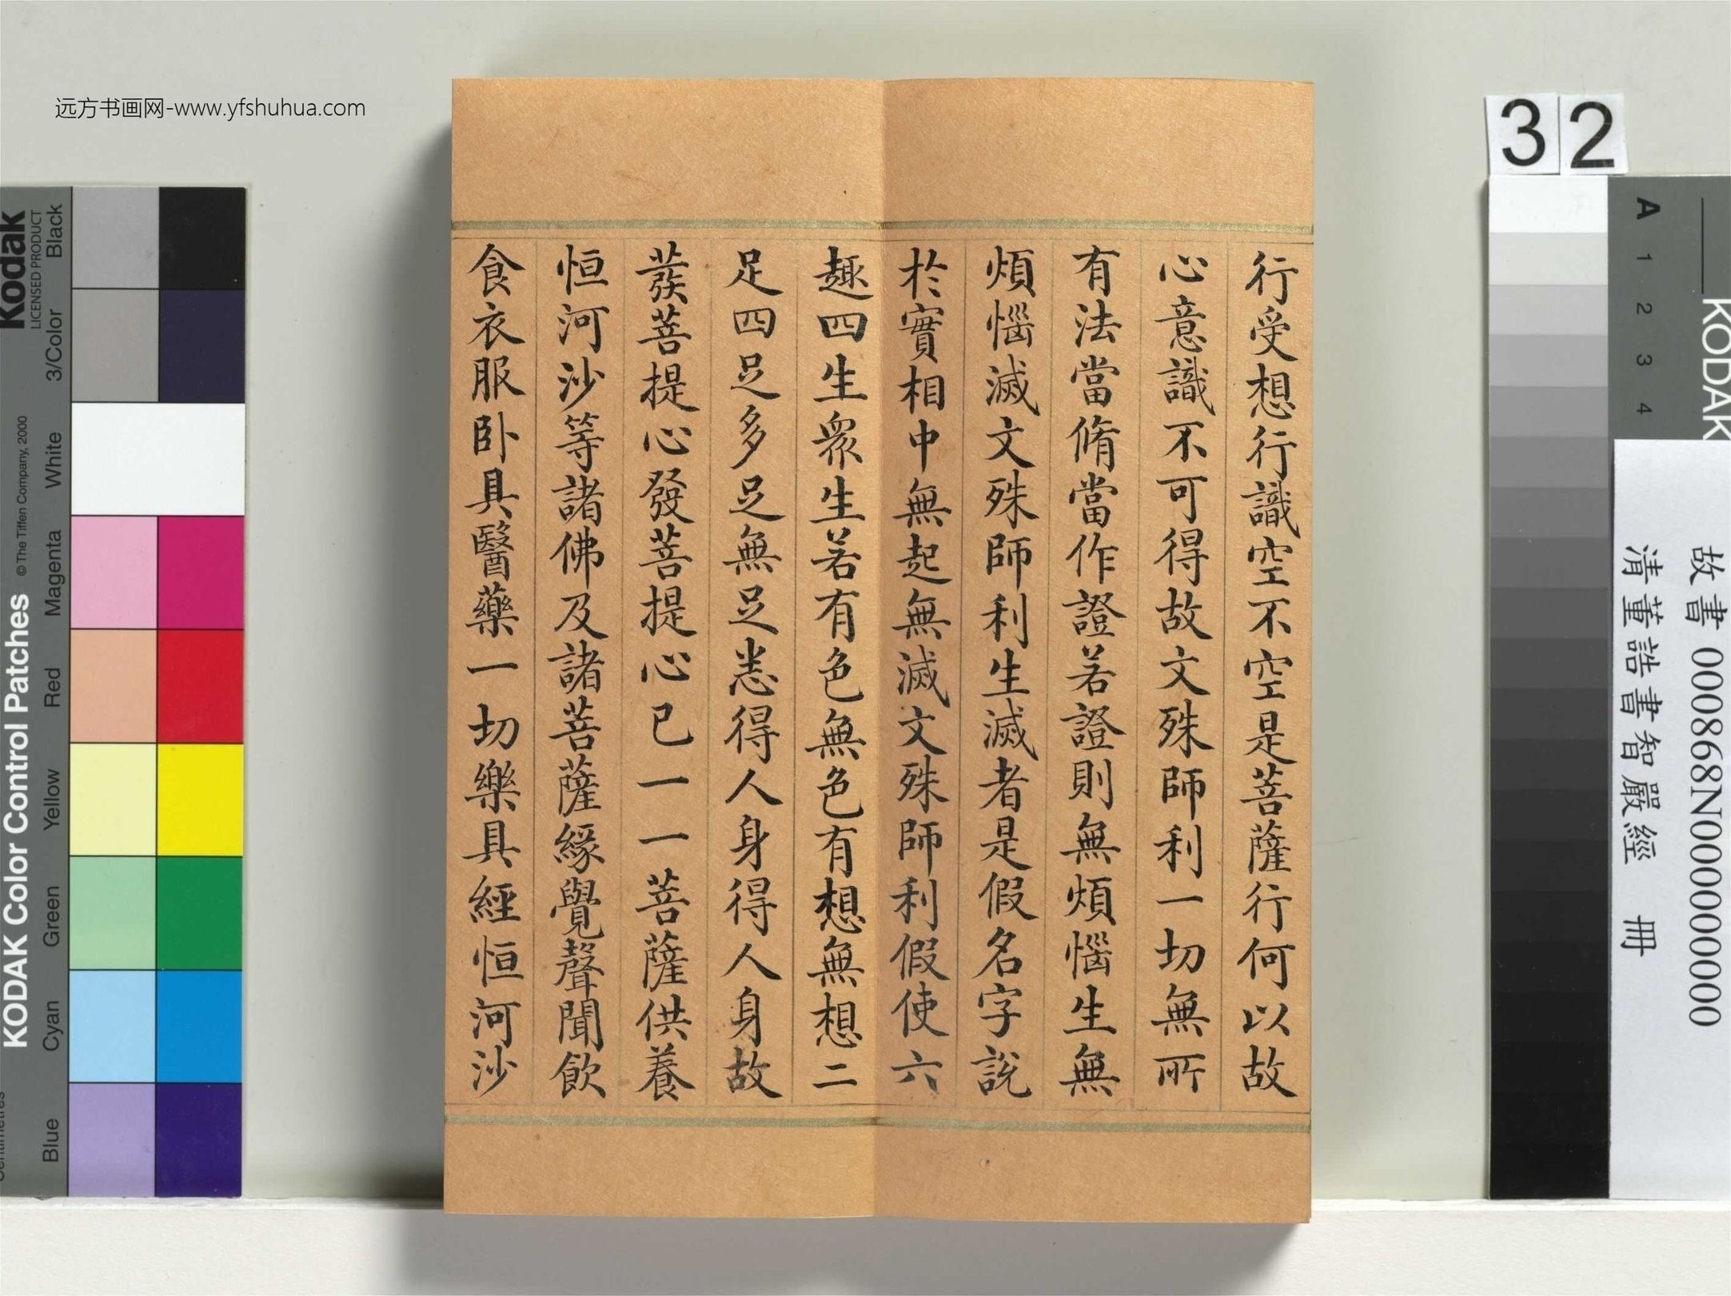 行受想行識空不空是菩薩行何以故
心意識不可得故文殊師利一切無所
有法當脩當作證若證則無煩惱生無
煩惱滅文殊師利生滅者是假名字說
於實相中無起無滅文殊師利假使六
趣四生衆生若有色無色有想無想二
足四足多足無足悉得人身得人身故
發菩提心發菩提心已一一菩薩供養
恒河沙等諸佛及諸菩薩緣覺聲聞飲
食衣服卧具醫藥一切樂具經恒河沙
远方书画网-www.yfshuhua.com
32
Kodak
LICENSED PRODUCT
KODAK Color Control Patches
© The Tiffen Company, 2000
Black
3/Color
White
Magenta
Red
Yellow
Green
Cyan
Blue
Centimetres
A
1
2
3
4
KODAK
故書 000868N000000000
清董誥書智嚴經 冊